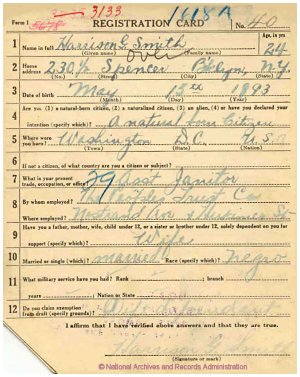 Form 1 3/33 1618 A
REGISTRATION CARD No. 40
1 Name in full Harrison G. Smith Age, in yrs. 24
(Given name) (Family name)
Over
2 Home address 230 Spencer Bklyn, N.Y.
(No.) (Street) (City) (State)
3 Date of birth May 13th 1893
(Month) (Day) (Year)
4 Are you (1) a natural-born citizen, (2) a naturalized citizen, (3) an alien, (4) or have you declared your
intention (specify which)? A natural born Citizen
5 Where were you born? Washington D.C. U.S.A
(Town) (State) (Nation)
6 If not a citizen, of what country are you a citizen or subject?
7 What is your present trade, occupation, or office? 29 Asst Janitor
8 By whom employed? Trust Co
Where employed? Nostrand Av &
9 Have you a father, mother, wife, child under 12, or a sister or brother under 12, solely dependent on you for
support (specify which)? Wife
10 Married or single (which)? married Race (specify which)? Negro
11 What military service have you had? Rank ; branch
years ; Nation or State
12 Do you claim exemption from draft (specify grounds)?
I affirm that I have verified above answers and that they are true.
Smith
(Signature or mark)
© National Archives and Records Administration